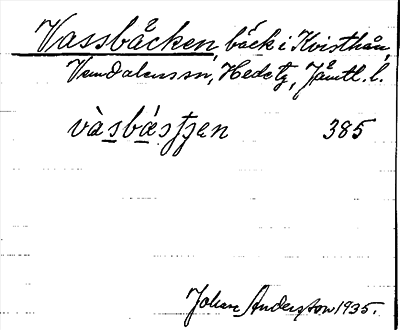 Vassbäcken, bäck i Kvisthån,
Vemdalens sn, Hedetg, Jämtl. l.
vàsbástjen 385
Johan Andersson 1935.